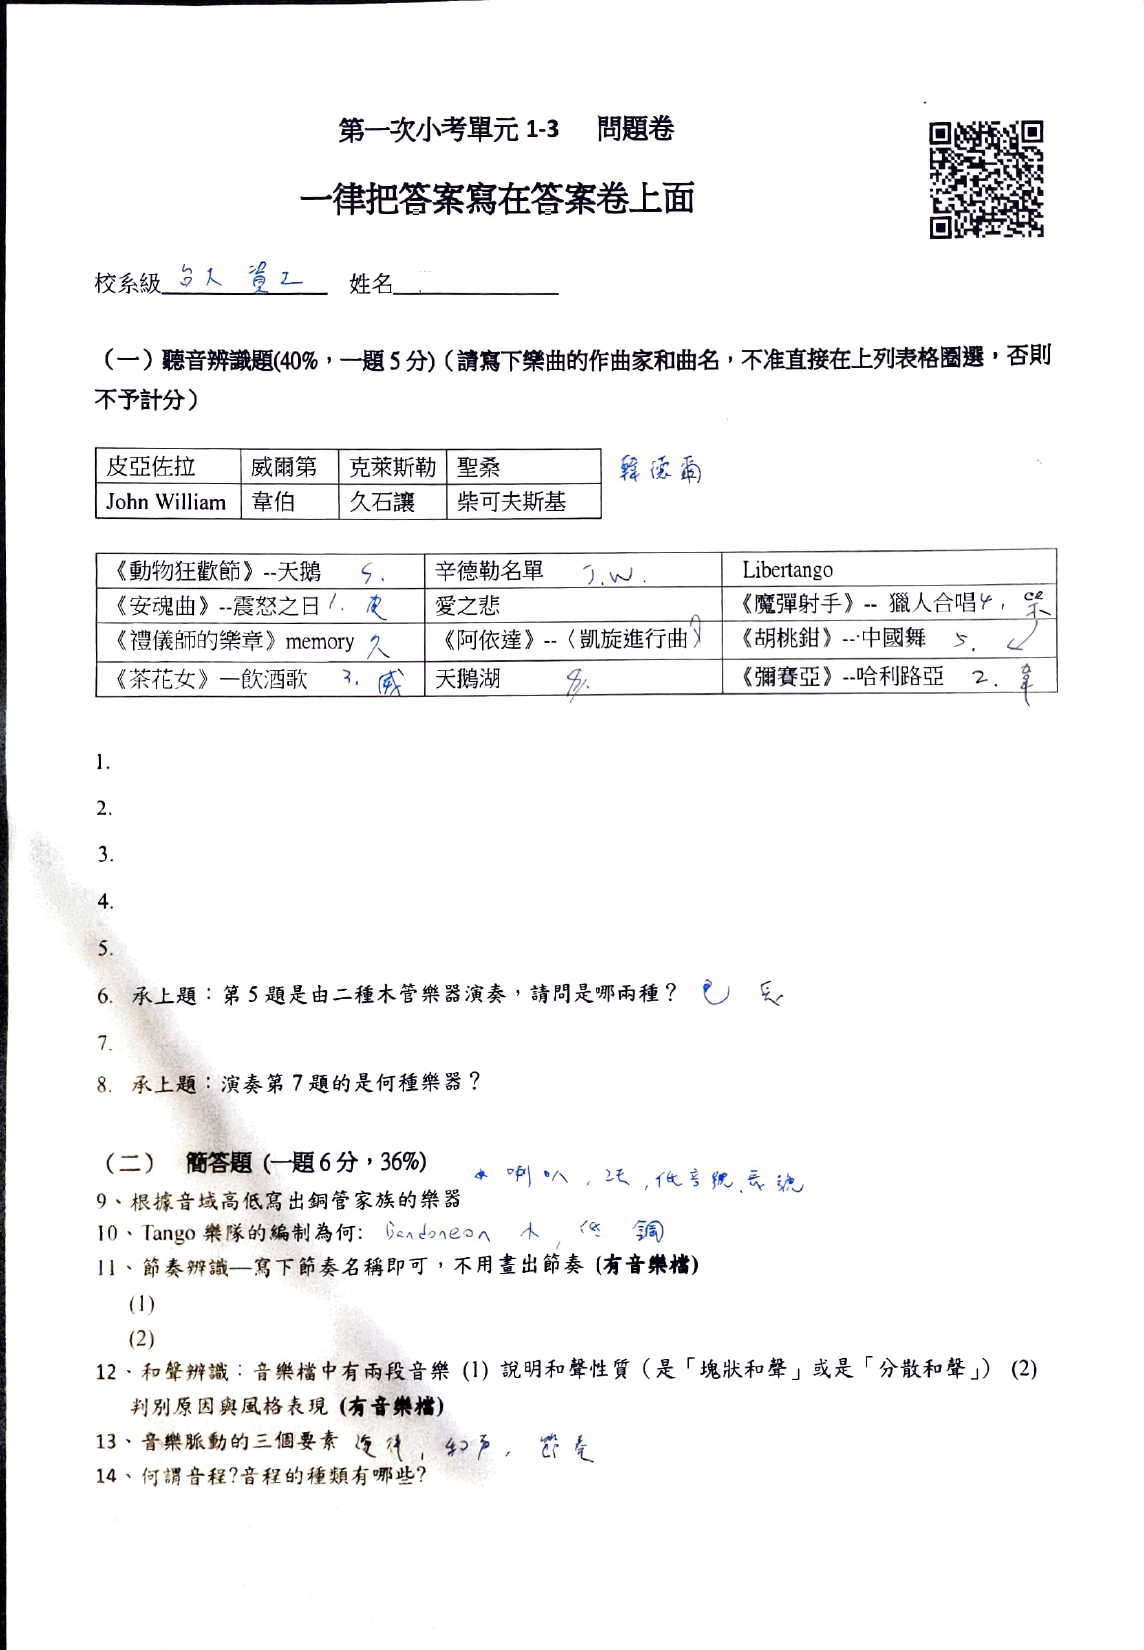 第一次小考單元 1-3 問題卷
一律把答案寫在答案卷上面
校系級 台大 資工 姓名
（一）聽音辨識題(40%，一題 5 分)（請寫下樂曲的作曲家和曲名，不准直接在上列表格圈選，否則
不予計分）
皮亞佐拉 威爾第 克萊斯勒 聖桑 韓德爾
John William 韋伯 久石讓 柴可夫斯基
《動物狂歡節》--天鵝 S. 辛德勒名單 J.W. Libertango
《安魂曲》--震怒之日 1. 愛之悲 《魔彈射手》-- 獵人合唱 4.
《禮儀師的樂章》memory 久 《阿依達》--〈凱旋進行曲〉 《胡桃鉗》--中國舞 5.
《茶花女》—飲酒歌 3. 威 天鵝湖 8. 《彌賽亞》--哈利路亞 2. 韋
1.
2.
3.
4.
5.
6. 承上題：第 5 題是由二種木管樂器演奏，請問是哪兩種？ 巴 長
7.
8. 承上題：演奏第 7 題的是何種樂器？
（二） 簡答題 (一題 6 分，36%)
* 喇叭, 低音號、長號
9、根據音域高低寫出銅管家族的樂器
10、Tango 樂隊的編制為何: Bandoneon 木, 銅
11、節奏辨識—寫下節奏名稱即可，不用畫出節奏 (有音樂檔)
(1)
(2)
12、和聲辨識：音樂檔中有兩段音樂 (1) 說明和聲性質（是「塊狀和聲」或是「分散和聲」） (2)
判別原因與風格表現 (有音樂檔)
13、音樂脈動的三個要素 旋律, 和声, 節奏
14、何謂音程?音程的種類有哪些?